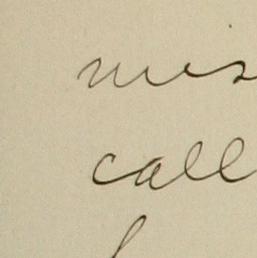 mis
call